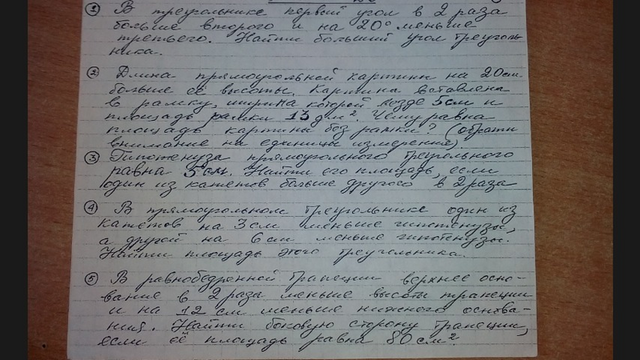 ① В треугольнике первый угол в 2 раза
больше второго и на 20° меньше
третьего. Найти больший угол треуголь
ника.
② Длина прямоугольной картины на 20см
больше её высоты. Картина вставлена
в рамку, ширина которой везде 5см и
площадь рамки 13 дм². Чему равна
площадь картины без рамки? (обрати
внимание на единицы измерения).
③ Гипотенуза прямоугольного треугольного
равна 5см. Найти его площадь, если
один из катетов больше другого в 2 раза
④ В прямоугольном треугольнике один из
катетов на 3см меньше гипотенузы,
а другой на 6см меньше гипотенузы.
Найти площадь этого треугольника.
⑤ В равнобедренной трапеции верхнее осно-
вание в 2 раза меньше высоты трапеции
и на 12 см меньше нижнего основа-
ния. Найти боковую сторону трапеции,
если её площадь равна 80см²